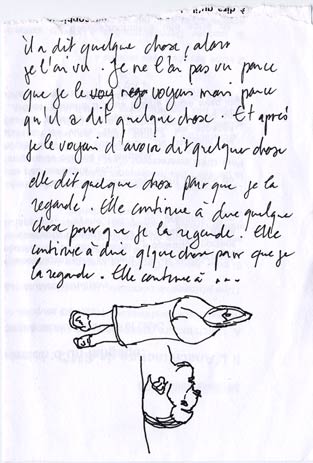 il a dit quelque chose, alors
je l'ai vu. Je ne l'ai pas vu parce
que je le voy rega voyais mais parce
qu'il a dit quelque chose. Et après
je le voyais d'avoir dit quelque chose
elle dit quelque chose pour que je la
regarde. Elle continue à dire quelque
chose pour que je la regarde. Elle
continue à dire qlque chose pour que je
la regarde. Elle continue à ...